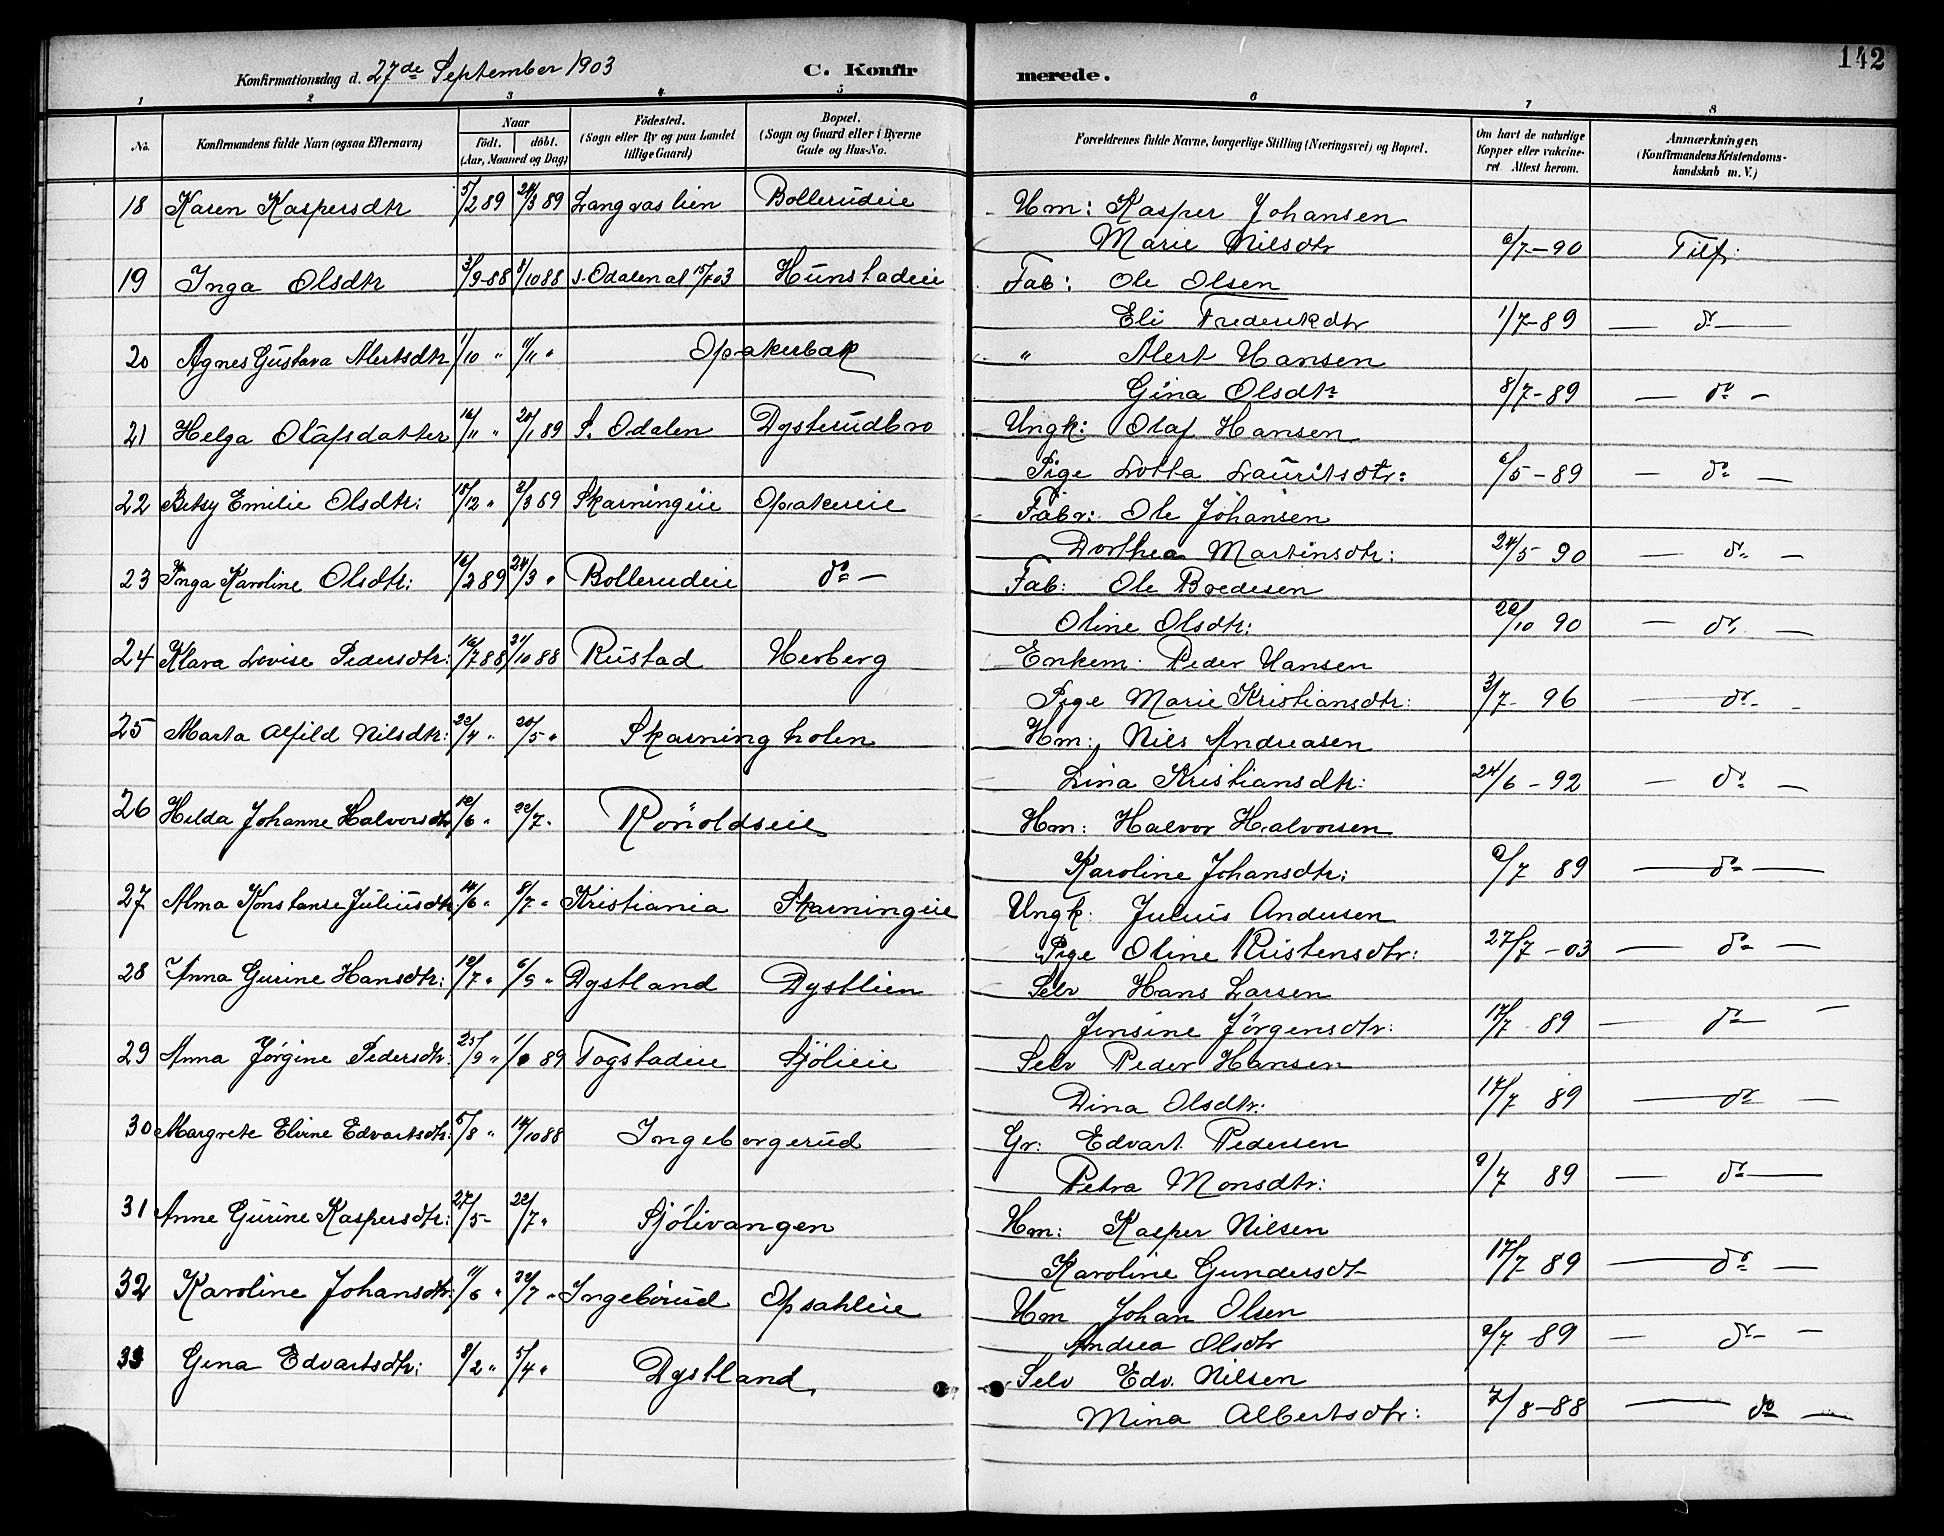 142
Konfirmationsdag d. 27de September 1903 C. Konfirmerede.
1 2 3 4 5 6 7 8
No. Konfirmandens fulde Navn (ogsaa Efternavn) Naar født. døbt. (Aar, Maaned og Dag) Fødested. (Sogn eller By og paa Landet tillige Gaard) Bopæl. (Sogn og Gaard eller i Byerne Gade og Hus-No. Forældrenes fulde Navne, borgerlige Stilling (Næringsvei) og Bopæl. Om havt de naturlige Kopper eller vakcineret Attest herom. Anmærkninger. (Konfirmandens Kristendomskundskab m. V.)
18 Karen Kaspersdtr 5/2 89 24/3 89 Langaaslien Bollerudeie Hm: Kasper Johansen
Marie Nilsdtr 6/7-90 Tilf:
19 Inga Olsdtr 3/9-88 8/10 88 S. Odalen at 15/7 03 Hunstadeie Fab: Ole Olsen
Eli Frederikdtr 1/7-89 — do —
20 Agnes Gustava Alertsdtr 1/10 " 11/11 " Opakerbak " Alert Hansen
Gina Olsdtr 8/7-89 — do —
21 Helga Olafsdatter 16/11 " 20/1 89 S. Odalen Dysterudbro Ungk: Olaf Hansen
Pige Lotta Lauritsdtr: 6/5-89 — do —
22 Betsy Emilie Olsdtr: 15/12 " 3/3 89 Skarningeie Opakereie Fabr: Ole Johansen
Dorthea Martinsdtr: 24/5 90 — do —
23 Inga Karoline Olsdtr: 16/2 89 24/3 " Bollerudeie do — Fab: Ole Bredesen
Oline Olsdtr: 20/10 90 — do. —
24 Klara Lovise Pedersdtr: 16/7 88 21/10 88 Rustad Herberg Enkem: Peder Hansen
Pige Marie Kristiansdtr: 3/7-96 — do -
25 Marta Alfild Nilsdtr: 22/4 " 20/5 " Skarningholen Hm: Nils Andreasen
Lina Kristiansdtr: 24/6-92 — do —
26 Hilda Johanne Halvorsdtr 12/6 " 22/7 " Rönoldseie Hm: Halvor Halvorsen
Karoline Johansdtr: 6/7 89 — do —
27 Alma Konstanse Juliusdtr 14/6 " 8/7 " Kristiania Skarningeie Ungk: Julius Andersen
Pige Oline Kristensdtr: 27/7-03 — do —
28 Anna Gurine Hansdtr: 12/7 " 6/9 " Dystland Dystlien Selv Hans Larsen
Jensine Jörgensdtr: 17/7 89 — do —
29 Anna Jörgine Pedersdtr: 25/9 " 1/1 89 Togstadeie Sjölieie Selv Peder Hansen
Dina Olsdtr: 17/7 89 — do —
30 Margrete Elvine Edvartsdtr: 5/8 " 14/10 88 Ingeborgerud Gr: Edvart Pedersen
Petra Monsdtr: 9/7 89 — do —
31 Anne Gurine Kaspersdtr: 27/5 - 22/7 " Sjölivangen Hm: Kasper Nilsen
Karoline Gundersdt 17/7 89 — do —
32 Karoline Johansdtr: 11/6 " 22/7 " Ingeborud Opsahleie Hm Johan Olsen
Andrea Olsdtr 9/7 89 — do —
33 Gina Edvartsdtr: 8/2 " 5/4 " Dystland Selv Edv. Nilsen
Mina Albertsdtr: 7/8-88 — do —